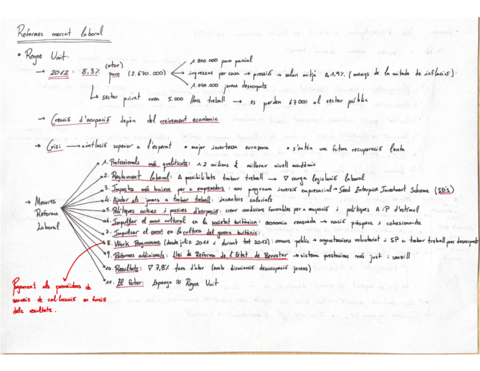 Reformes mercat laboral
• Regne Unit:
→ 2012 - 8,3% (atur) paro (2.670.000)
1.300.000 paro parcial
ingressos per casa → pressió → salari mitjà Δ 1,9% (menys de la meitat de inflació).
1.040.000 joves desocupats
↳ sector privat crea 5.000 llocs treball → es perden 67.000 al sector públic
• Creació d'ocupació depèn del creixement econòmic
• Crisi → inflació superior a l'esperat • major incertesa europea • s'entén una futura recuperació lenta
→ Mesures Reforma Laboral
1. Professionals més qualificats: 2 milions € millorar nivell acadèmic
2. Reglament laboral: Δ possibilitats trobar treball → ∇ càrrega legislació laboral
3. Impostos més baixos per a emprendre: nou programa inversió empresarial → Seed Enterprise Investment Scheme (SEIS)
4. Ajudar als joves a trobar treball: incentius salarials
5. Polítiques actives i passives d'ocupació: crear condicions favorables per a ocupació i polítiques
6. Impulsar el canvi cultural en la societat britànica: economia renovada → nació pròspera i cohesionada.
7. Impulsar el canvi en la cultura del govern britànic:
8. Work Programme (desde juliol 2011 i durant tot 2012): sector públic + organitzacions voluntariat i SP → trobar treball per desocupats
9. Reformes addicionals: Llei de Reforma de l'Estat de Benestar → sistema prestacions més just i senzill
10. Resultats: ∇ 7,8% taxa d'atur (només desocupació joves)
11. El futur: Espanya ≈ Regne Unit
Pagament als proveïdors de serveis de col·locació en funció dels resultats.